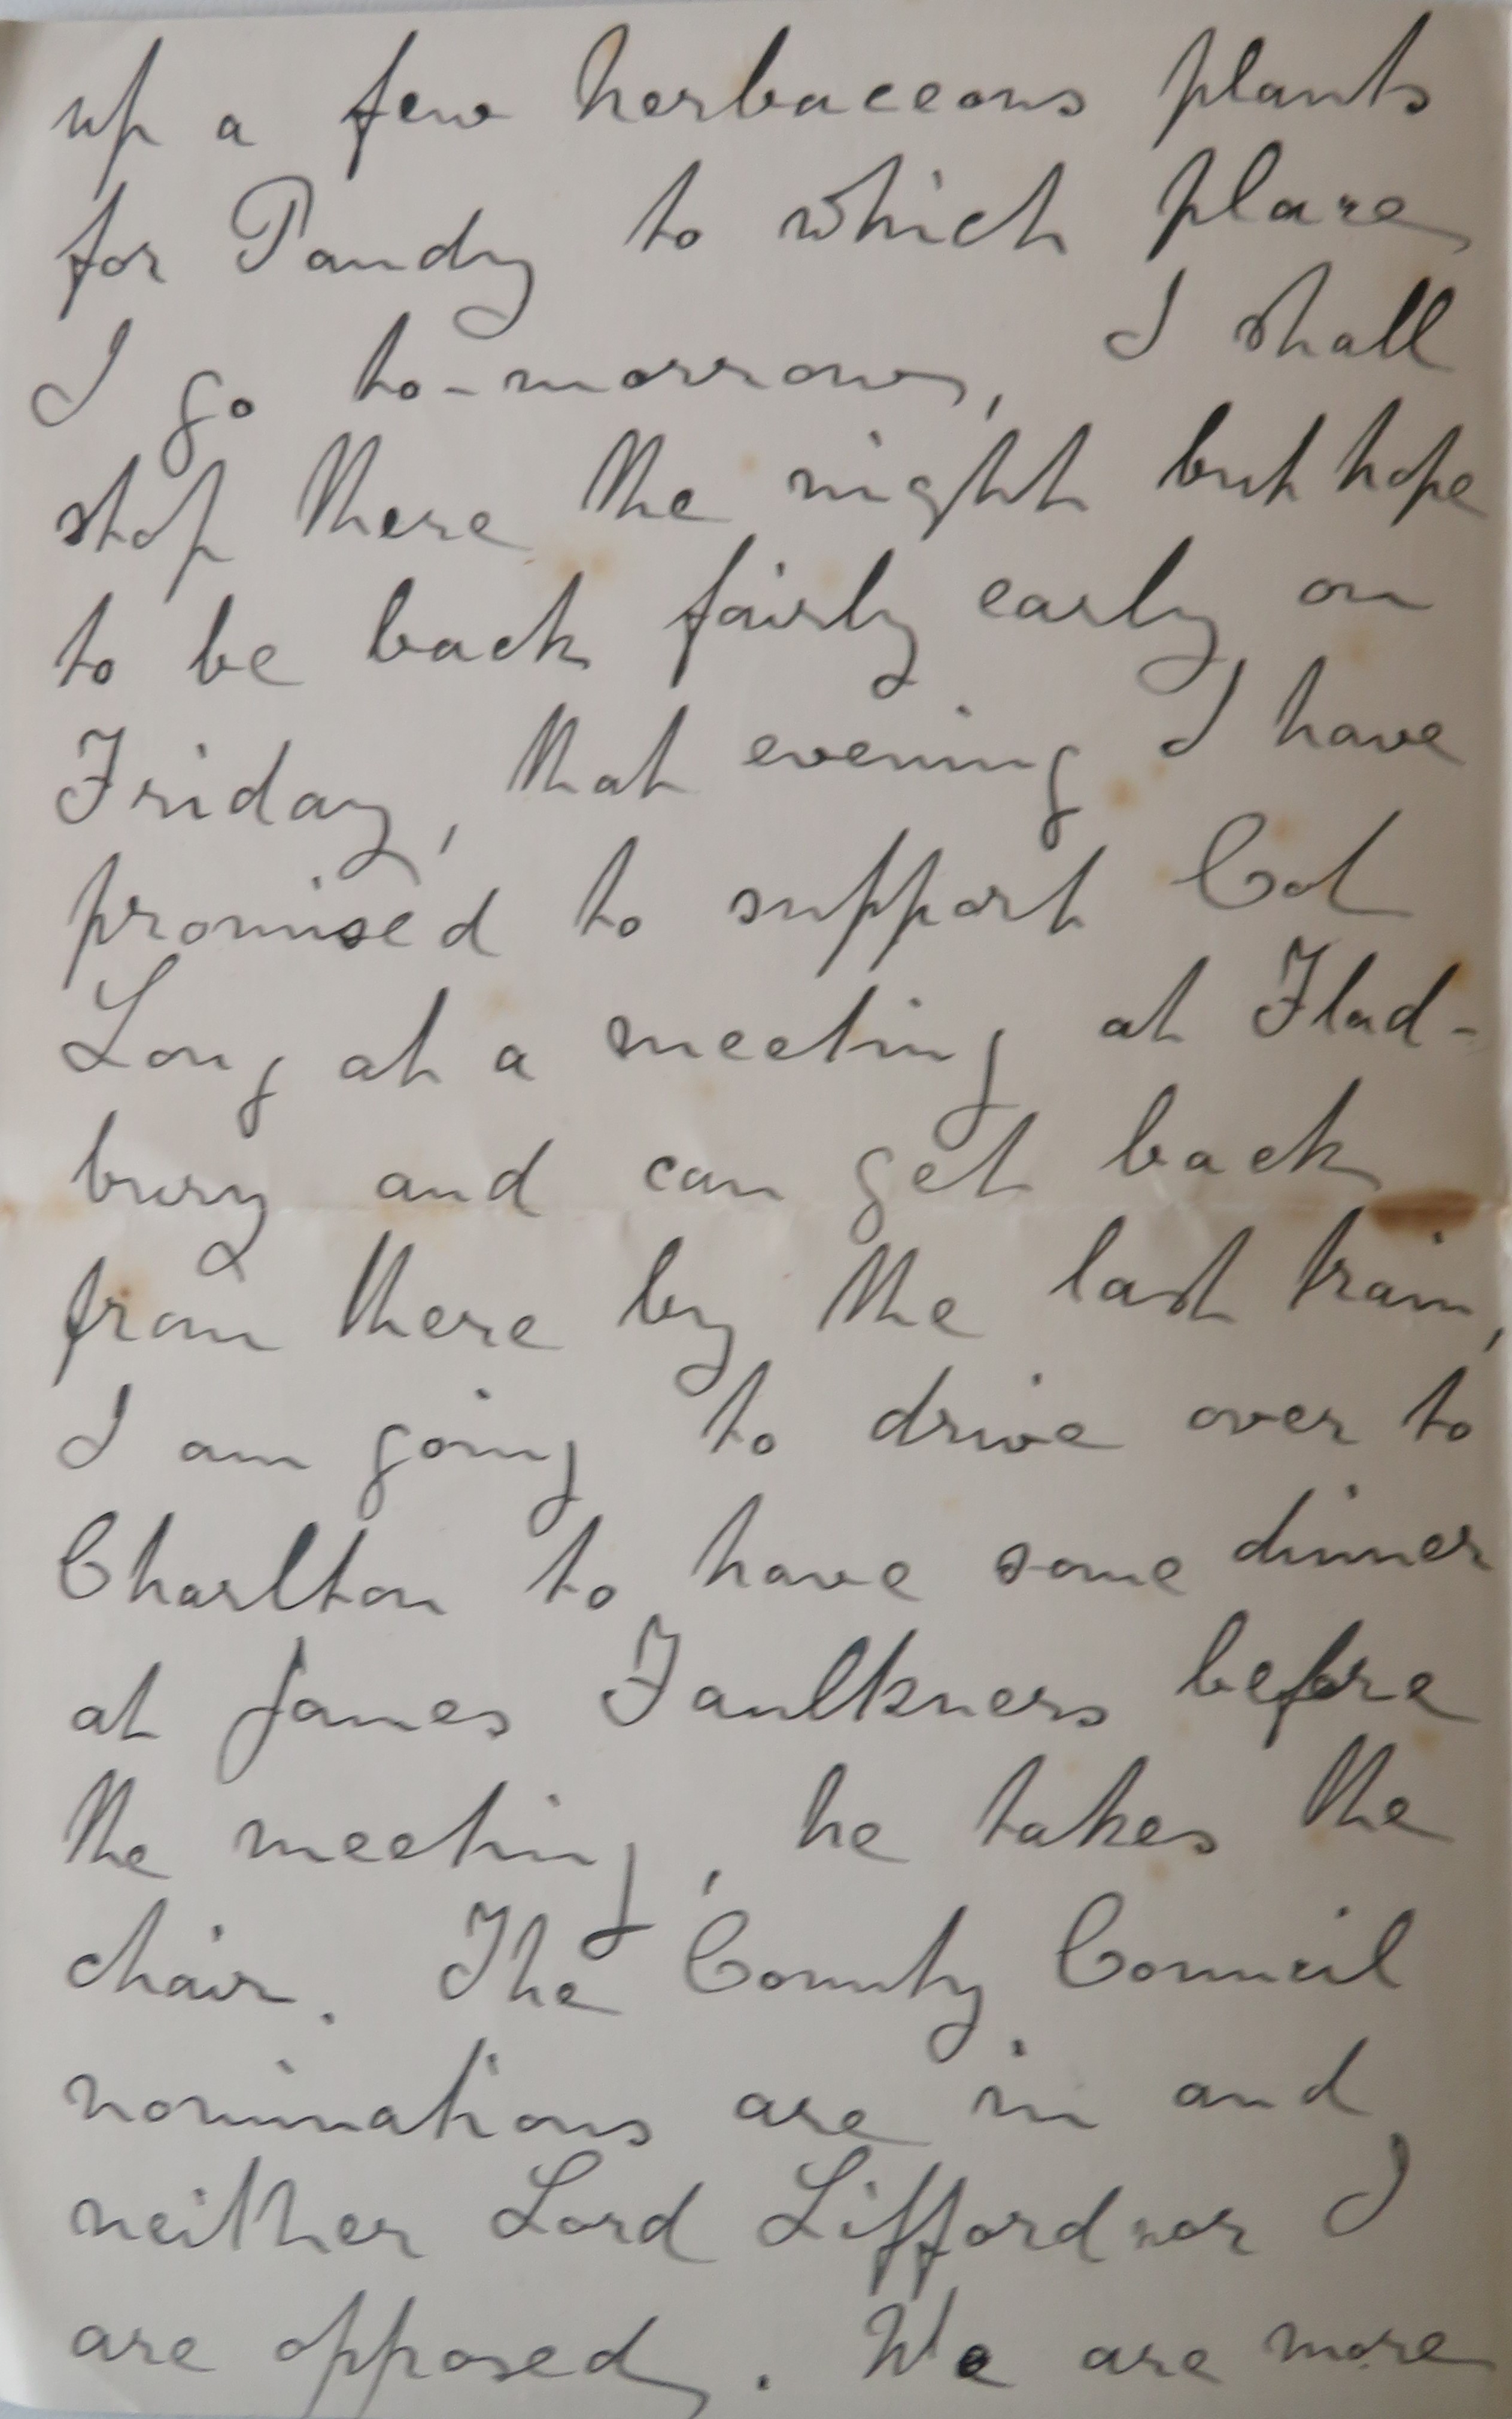 up a few herbaceous plants
for Pandy to which place
I go to-morrow, I shall
stop there the night but hope
to be back fairly early on
Friday, that evening I have
promised to support Col
Long at a meeting at Flad-
bury and can get back
from there by the last train,
I am going to drive over to
Charlton to have some dinner
at James Faulkners before
the meeting, he takes the
chair. The County Council
nominations are in and
neither Lord Lifford nor I
are opposed. We are more